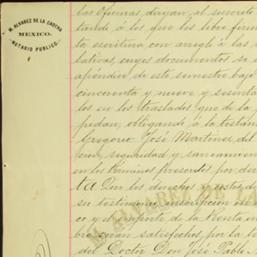 M. ALVAREZ DE LA CADENA
MEXICO.
NOTARIO PUBLICO.
las Oficinas, dirijan al suscrito
tando á los que los libre firm
la escritura con arreglo á las
lativas cuyos documentos se
apéndice de este semestre bajo
cincuenta y nueve y sesenta
los en los traslados que de la
pedan, obligando á la testam
Gregorio José Martinez del
cion, seguridad y saneamien
en los términos prescritos por der
Que los derechos
su testimonio, inscripcion
co y el importe de la Renta in
bre seran satisfechos por la
del Doctor Don José Pablo
M. ALVAREZ DE LA